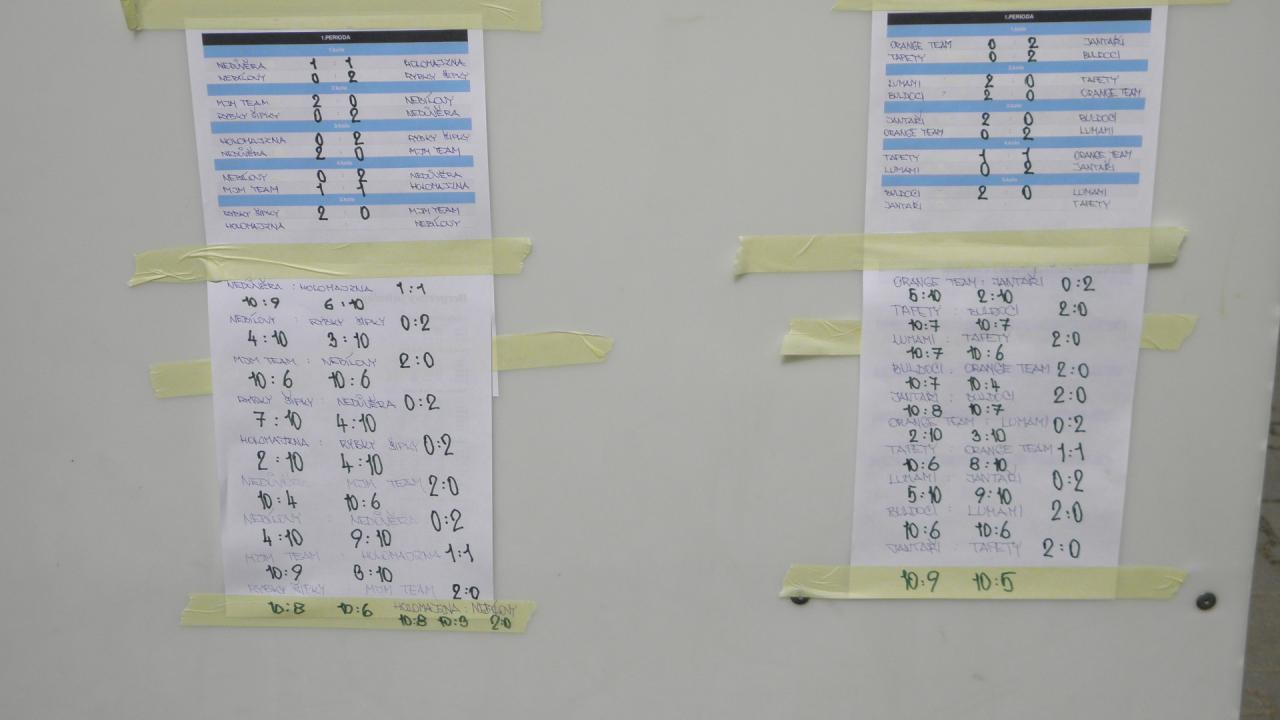 1.PERIODA
1.kolo
NEDŮVĚRA 1 : 1 HOLOMAJZNA
NEBÍLOVY 0 : 2 RYBKY ŠIPKY
2.kolo
MJM TEAM 2 : 0 NEBÍLOVY
RYBKY ŠIPKY 0 : 2 NEDŮVĚRA
3.kolo
HOLOMAJZNA 0 : 2 RYBKY ŠIPKY
NEDŮVĚRA 2 : 0 MJM TEAM
4.kolo
NEBÍLOVY 0 : 2 NEDŮVĚRA
MJM TEAM 1 : 1 HOLOMAJZNA
5.kolo
RYBKY ŠIPKY 2 : 0 MJM TEAM
HOLOMAJZNA NEBÍLOVY
NEDŮVĚRA : HOLOMAJZNA 1:1
10:9 6:10
NEBÍLOVY : RYBKY ŠIPKY 0:2
4:10 3:10
MJM TEAM : NEBÍLOVY 2:0
10:6 10:6
RYBKY ŠIPKY : NEDŮVĚRA 0:2
7:10 4:10
HOLOMAJZNA : RYBKY ŠIPKY 0:2
2:10 4:10
NEDŮVĚRA : MJM TEAM 2:0
10:4 10:6
NEBÍLOVY : NEDŮVĚRA 0:2
4:10 9:10
MJM TEAM : HOLOMAJZNA 1:1
10:9 8:10
RYBKY ŠIPKY MJM TEAM 2:0
10:8 10:6 HOLOMAJZNA : NEBÍLOVY
10:8 10:9 2:0
1.PERIODA
1.kolo
ORANGE TEAM 0 : 2 JANTAŘI
TAPETY 0 : 2 BULDOCI
2.kolo
LUMAMI 2 : 0 TAPETY
BULDOCI 2 : 0 ORANGE TEAM
3.kolo
JANTAŘI 2 : 0 BULDOCI
ORANGE TEAM 0 : 2 LUMAMI
4.kolo
TAPETY 1 : 1 ORANGE TEAM
LUMAMI 0 : 2 JANTAŘI
5.kolo
BULDOCI 2 : 0 LUMAMI
JANTAŘI TAPETY
ORANGE TEAM : JANTAŘI 0:2
5:10 2:10
TAPETY : BULDOCI 2:0
10:7 10:7
LUMAMI : TAPETY 2:0
10:7 10:6
BULDOCI : ORANGE TEAM 2:0
10:7 10:4
JANTAŘI : BULDOCI 2:0
10:8 10:7
ORANGE TEAM : LUMAMI 0:2
2:10 3:10
TAPETY : ORANGE TEAM 1:1
10:6 8:10
LUMAMI : JANTAŘI 0:2
5:10 9:10
BULDOCI : LUMAMI 2:0
10:6 10:6
JANTAŘI : TAPETY 2:0
10:9 10:5